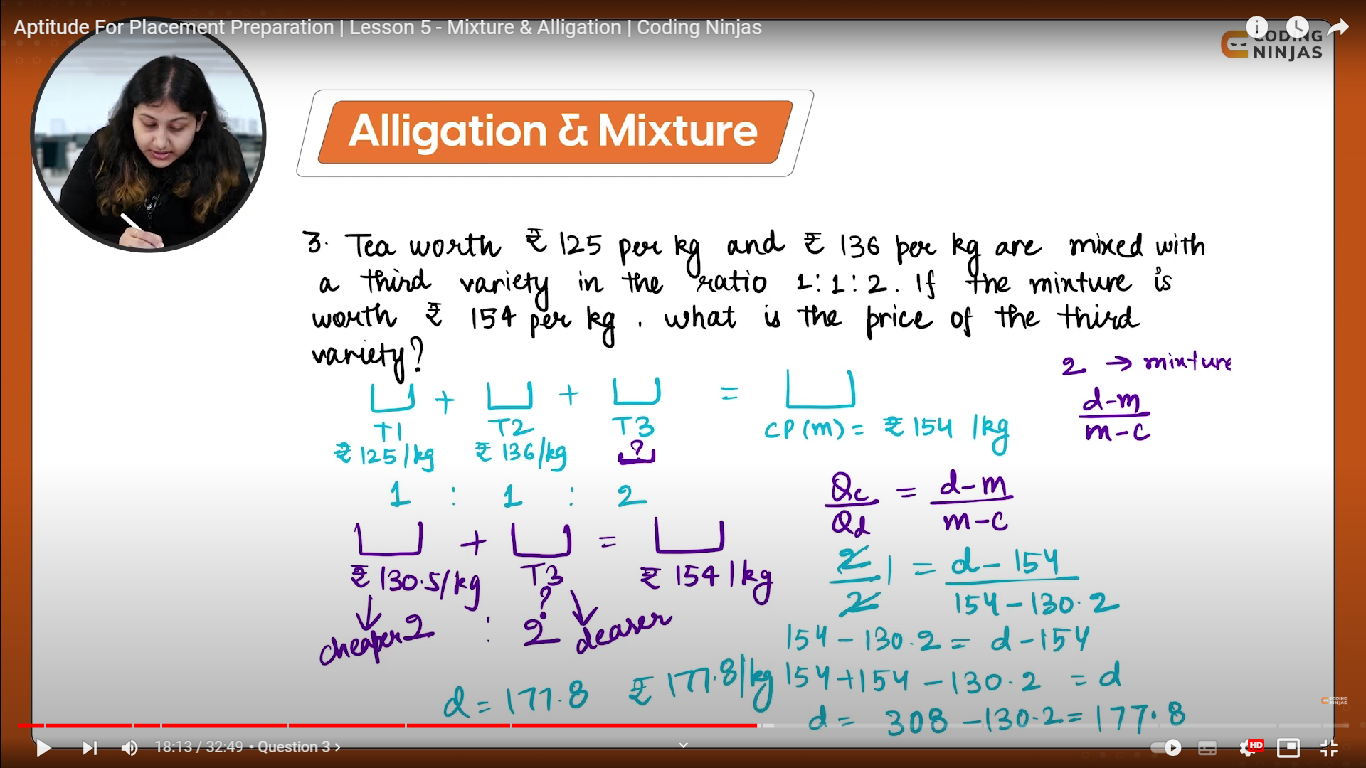 Aptitude For Placement Preparation | Lesson 5 - Mixture & Alligation | Coding Ninjas
CODING
NINJAS
Alligation & Mixture
3. Tea worth ₹ 125 per kg and ₹ 136 per kg are mixed with
a third variety in the ratio 1:1:2. If the mixture is
worth ₹ 154 per kg. what is the price of the third
variety?
2 → mixture
d-m
m-c
+ + =
T1 T2 T3 CP(m) = ₹ 154 /kg
₹ 125/kg ₹ 136/kg ?
1 : 1 : 2
Qc = d-m
Qd m-c
+ =
₹ 130.5/kg T3 ₹ 154/kg
?
cheaper 2 : 2 dearer
2 1 = d - 154
2 154 - 130.2
154 - 130.2 = d - 154
154 + 154 - 130.2 = d
d = 308 - 130.2 = 177.8
d = 177.8 ₹ 177.8/kg
CODING
NINJAS
18:13 / 32:49 • Question 3 >
HD